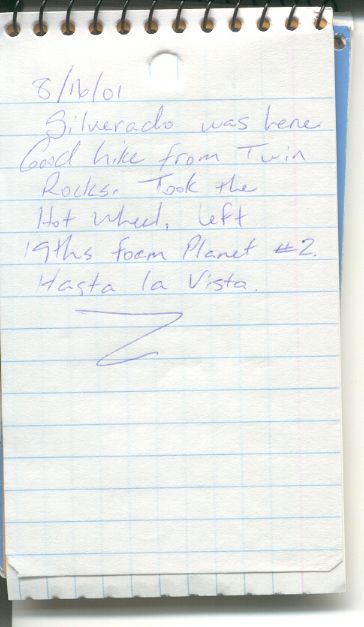 8/16/01
Silverado was here
Good hike from Twin
Rocks. Took the
Hot Wheel, left
19ths foam Planet #2.
Hasta la Vista.
Z